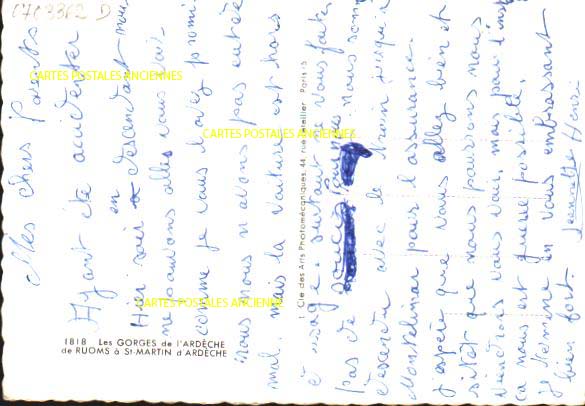 0703362 D
Mes chers Parents
Ayant été accidenter
Hier soir en descendant nous
ne pouvons aller vous voir
comme je vous l'avez promi
nous nous n avons pas entée
mal. mais la voiture est hors
d usage. surtout ne vous faite
pas de soucis nous somm
descendu avec le train jusqu'a
Montelimar pour l'assurance.
j'espère que vous allez bien et
sitot que nous pourrons nous
viendrons vous voir, mais pour l'inst
ca nous est guere possible.
je termine en vous embrassant
bien fort.
Jeannette Henri
1818 Les GORGES de l'ARDÈCHE
de RUOMS à St-MARTIN d'ARDÈCHE
Cie des Arts Photomécaniques, 44, rue Letellier - Paris-15
CARTES POSTALES ANCIENNES
CARTES POSTALES ANCIENNES
CARTES POSTALES ANCIENNES